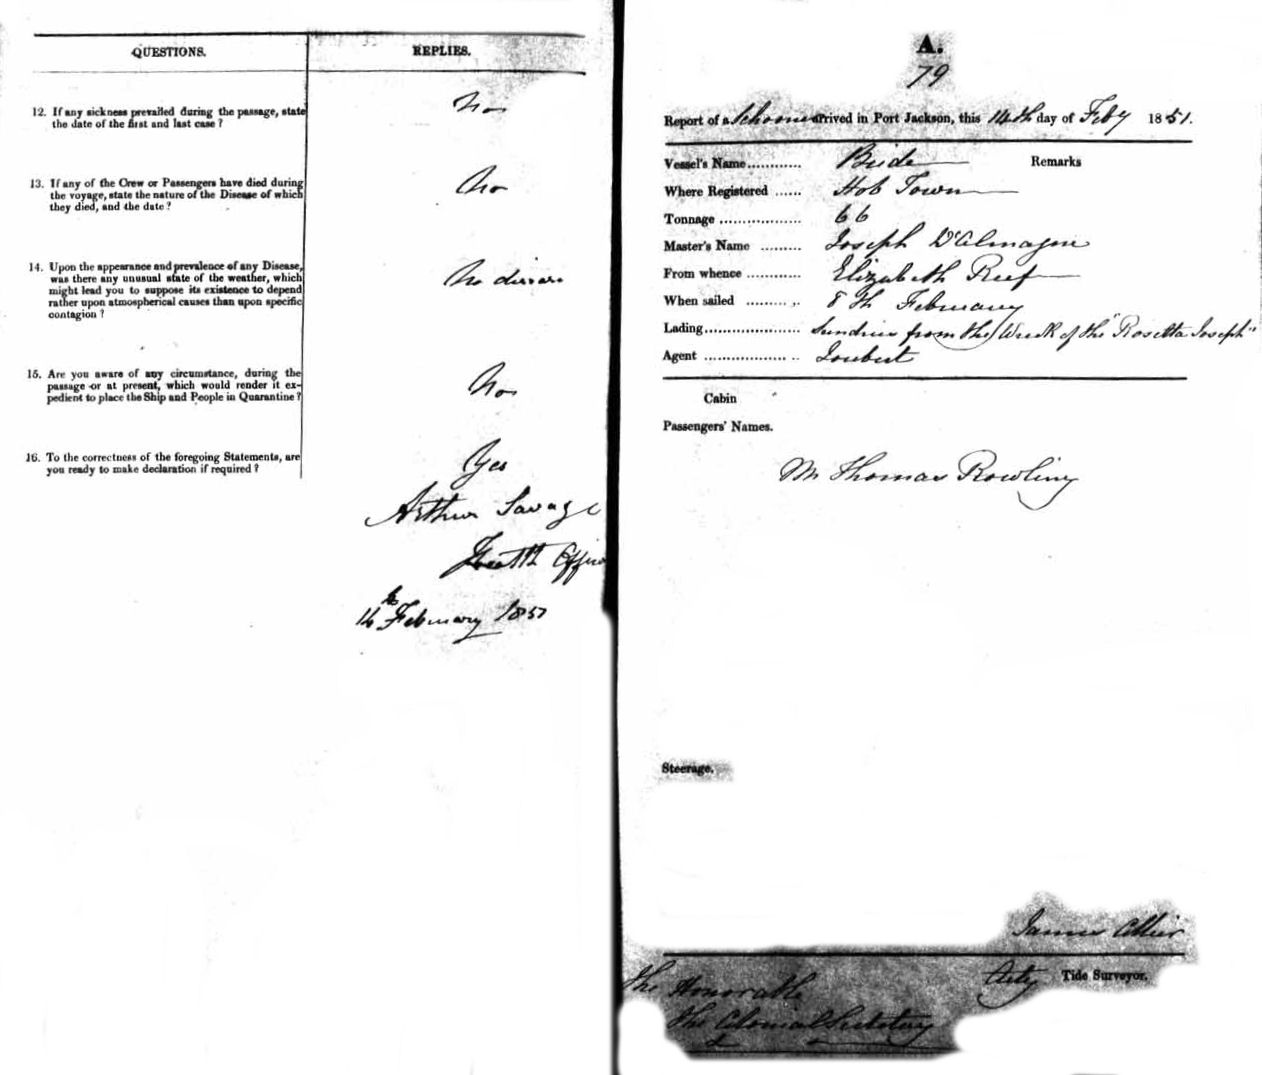 QUESTIONS.
REPLIES.
12. If any sickness prevailed during the passage, state
the date of the first and last case ?
No
13. If any of the Crew or Passengers have died during
the voyage, state the nature of the Disease of which
they died, and the date ?
No
14. Upon the appearance and prevalence of any Disease,
was there any unusual state of the weather, which
might lead you to suppose its existence to depend
rather upon atmospherical causes than upon specific
contagion ?
No disease
15. Are you aware of any circumstance, during the
passage or at present, which would render it ex-
pedient to place the Ship and People in Quarantine ?
No
16. To the correctness of the foregoing Statements, are
you ready to make declaration if required ?
Yes
Arthur Savage
Health Officer
14th February 1851
A.
79
Report of a Schooner arrived in Port Jackson, this 14th day of Feby 1851.
Vessel's Name............ Bride Remarks
Where Registered ...... Hob Town
Tonnage .................. 66
Master's Name ......... Joseph
From whence ............ Elizabeth Reef
When sailed ............ 8th February
Lading..................... Sundries from the Wreck of the "Rosetta Joseph"
Agent ..................... Joubert
Cabin
Passengers' Names.
Mr Thomas Rowling
Steerage.
James
Actg Tide Surveyor.
The Honorable
The Colonial Secretary